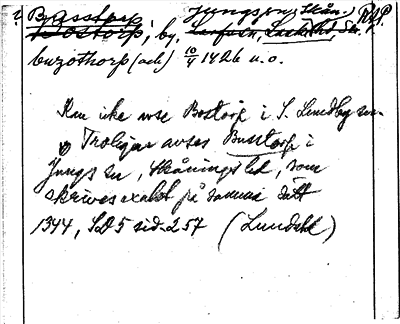 ? Basstorp Jungs sn, Skån. RAP.
Bostorp, by,
buzothorp (ack) 10/4 1426 u.o.
Kan icke avse Bostorp i S. Lundby sn.
Troligen avses Busstorp i
Jungs sn, Skånings hd, som
skrives exakt på samma sätt
1344, SD 5 sid. 257 (Lundahl)